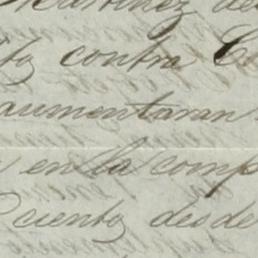 Martinez de
to contra C
aumentaran
en la comp
ciento desde